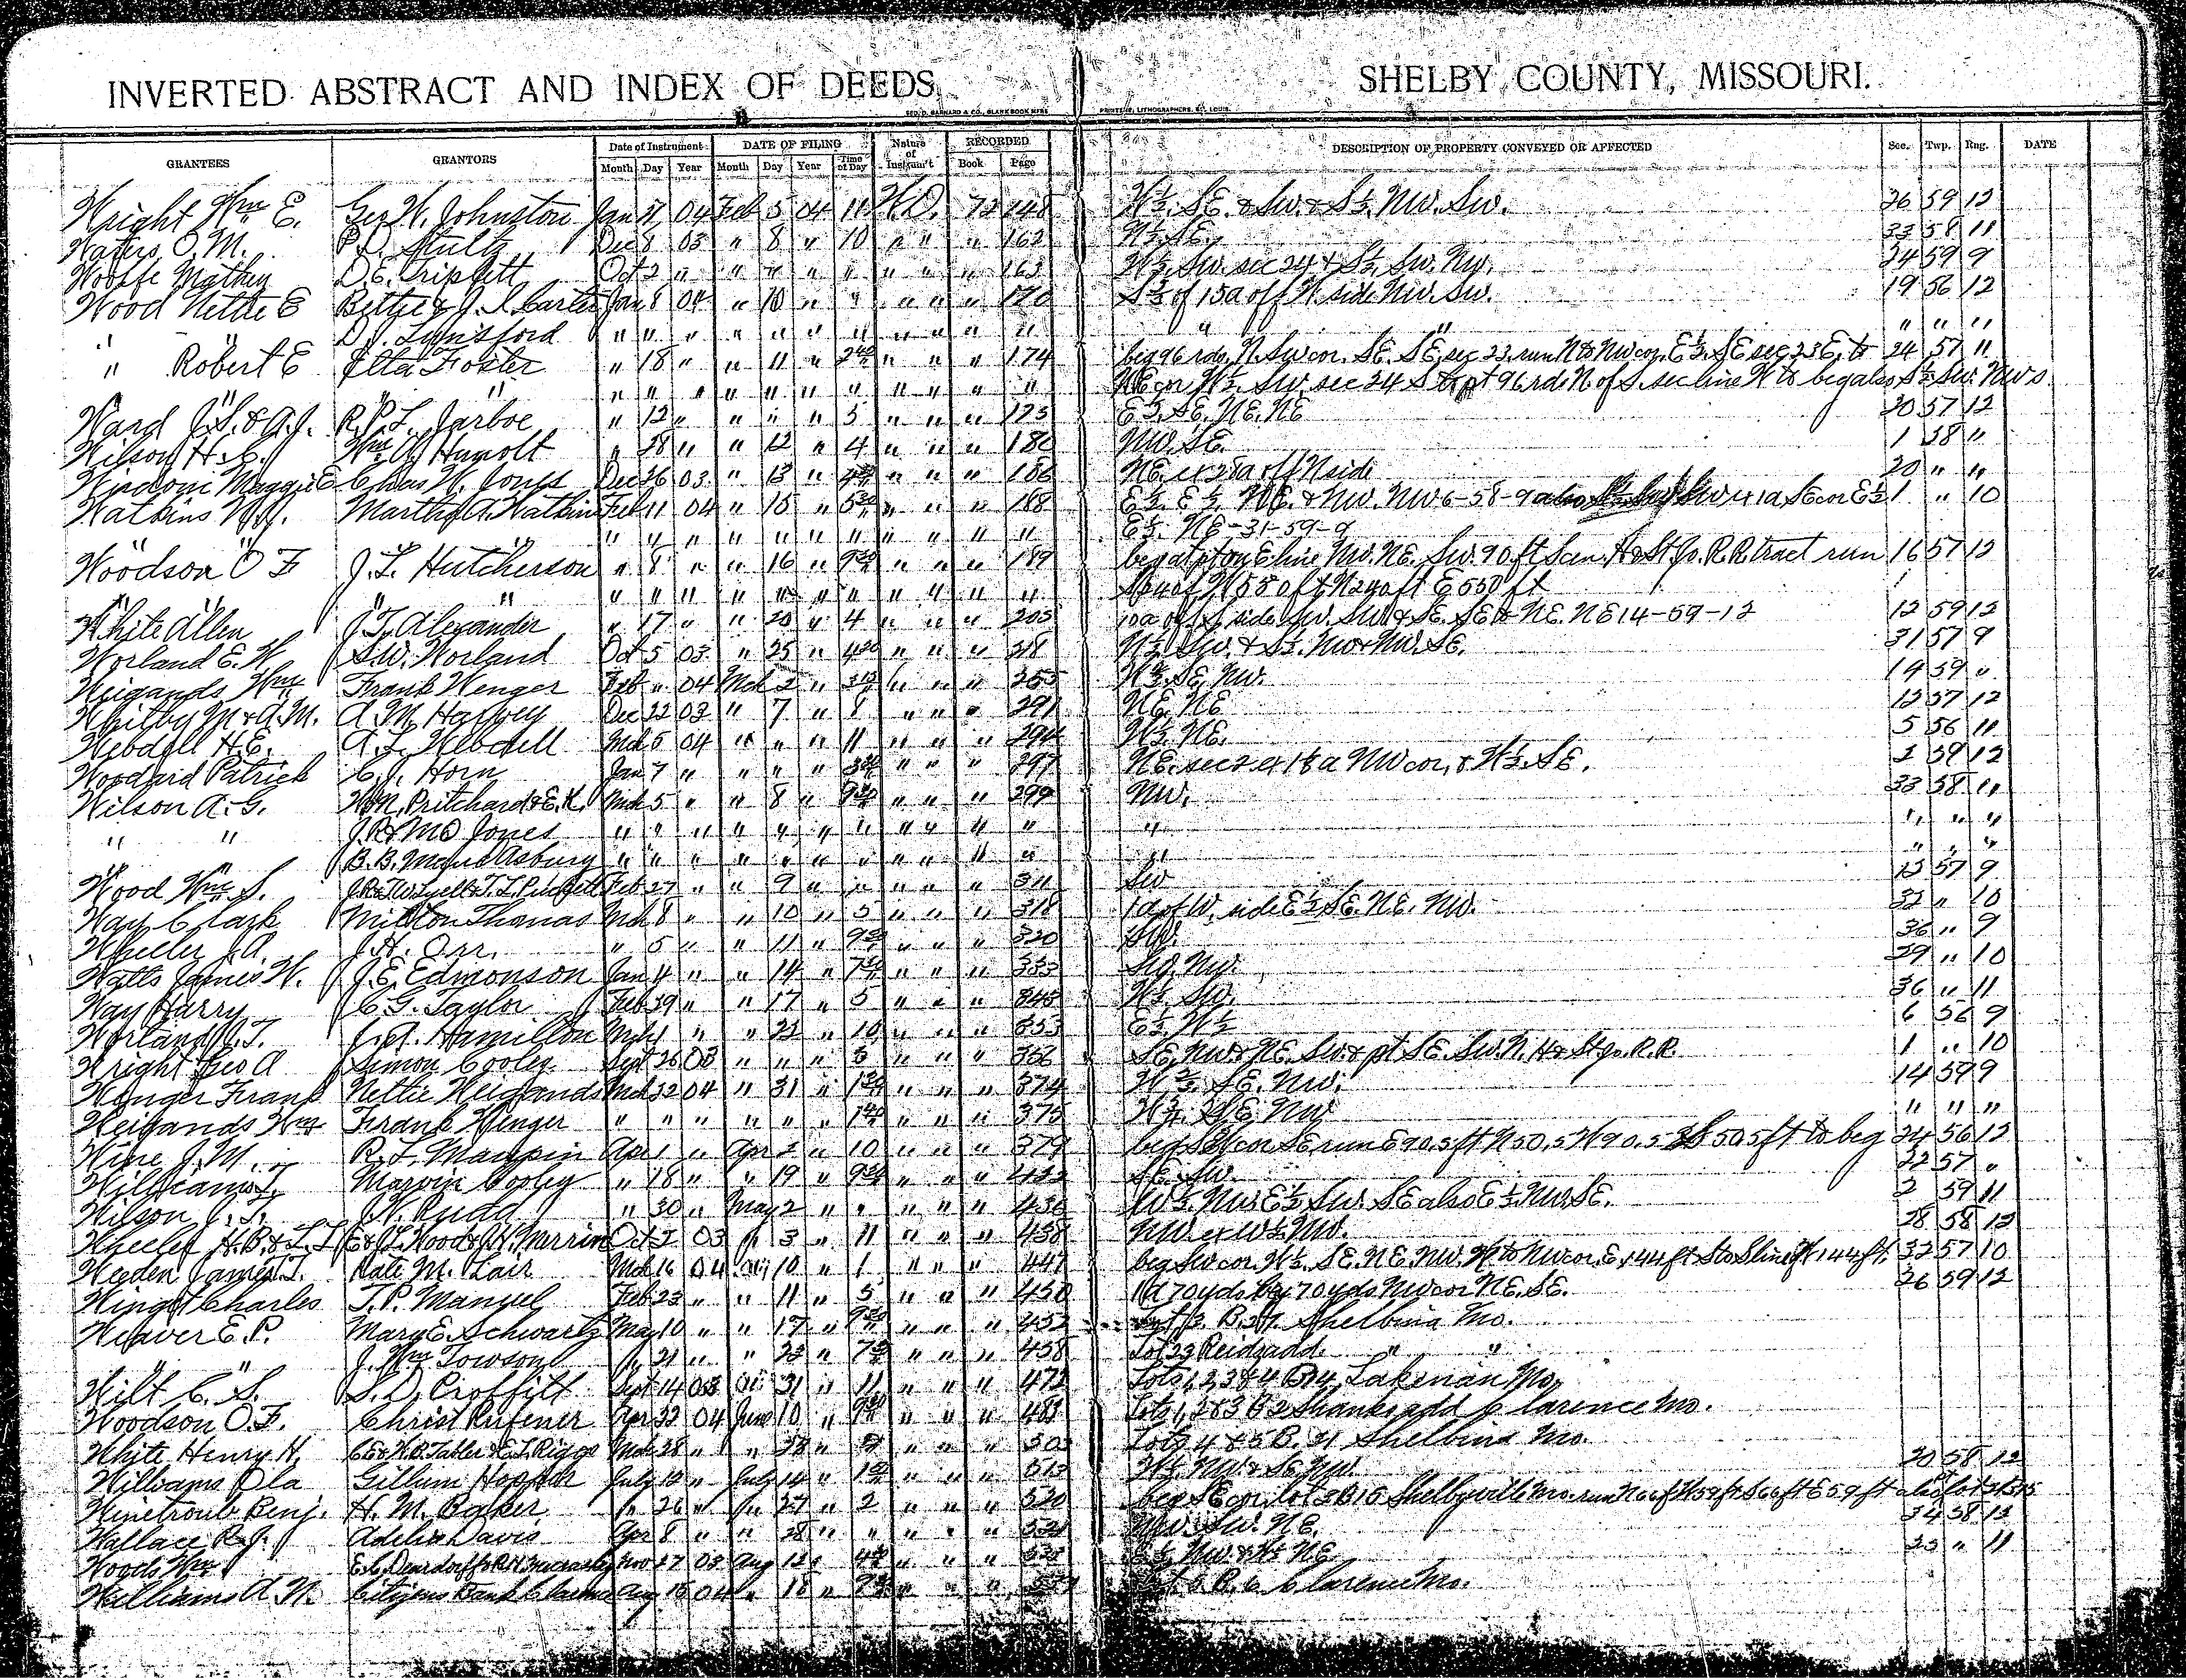 INVERTED ABSTRACT AND INDEX OF DEEDS, SHELBY COUNTY, MISSOURI.
GEO. D. BARNARD & CO., BLANK BOOK MFRS PRINTERS, LITHOGRAPHERS, ST. LOUIS.
GRANTEES GRANTORS Date of Instrument DATE OF FILING Nature of Instrum't RECORDED DESCRIPTION OF PROPERTY CONVEYED OR AFFECTED Sec. Twp. Rng. DATE
Month Day Year Month Day Year Time of Day Book Page
Wright Wm E. Geo W. Johnston Jan 04 Feb 5 04 11 W.D. 72 148 W½ SE. & Sw. & S½ Nw. Sw. 26 59 12
Waters O. M. P. D. Stultz Dec 8 03 " 8 " 10 " " " 162 N½ SE, 33 58 11
Woolfe Mathew D. C. Triplett Oct 2 " " " " " " " " 163 W½ Sw. sec 24 & S½ Sw. Nw. 24 59 9
Wood Nettie E Bettye & J. I. Carter Jan 8 04 " 10 " " " " " 170 S½ of 15a off W side Nw. Sw. 19 56 12
" " D. J. Lunsford " " " " " " " " " " " " " " " "
" Robert E Etta Foster " 18 " " 11 " 2 40 " " " 174 beg 96 rds N. Sw cor. SE. SE, sec 23, run N to Nw cor, E½ SE sec 23 E, to 24 57 11
" " " " " " " " " " " " " " NE cor W½ Sw. sec 24 S to pt 96 rds N. of S. sec line W to beg also S½ Sw. Nw s
Ward J. S. & A. J. R. P. L. Jarboe " 12 " " " " 5 " " " 175 E½ SE. NE. NE 20 57 12
Wilson H. C. Wm A. Humolt " 28 " " 12 " 4 " " " 180 Nw. SE. 1 58 "
Maggie E Chas W. Jones Dec 26 03 " 13 " " " " 186 NE. ex 28a off N side 20 " "
Watkins W. J. Martha A. Watkins Feb 11 04 " 15 " 5 30 " " " 188 E½ E½ NE. & Nw. Nw 6-58-9 also Sw ex 1a SE cor E½ 1 " 10
" " " " " " " " " " " " " " E½ NE-31-59-9
Woodson O F J. L. Hutcherson " 8 " " 16 " 9 " " " 189 beg at pt on E line Nw. NE. Sw. 90 ft S cen. H & St Jo. R. R. tract run 16 57 12
" " " " " " " " " " " " " " W 550 ft N 240 ft E 550 ft
White Allen J. T. Alexander " 17 " " 20 " 4 " " " 205 10a off S side Sw. Sw & SE. SE & NE. NE 14-59-12 12 59 12
Worland E. W. S. W. Worland Oct 5 03 " 25 " 4 20 " " " 218 N½ Sw. & S½ Nw & Nw. SE. 31 57 9
Weigands Wm Frank Wenger Feb " 04 Mch 2 " 3 " " " 255 W⅔ SE, Nw. 14 59 "
Whitby M & A. M. A. M. Harvey Dec 22 03 " 7 " 8 " " " 291 NE. NE 12 57 12
Webdell H. E. A. L. Webdell Mch 5 04 " " " 11 " " " 294 W½ NE. 5 56 11
Woodard Patrick C. J. Horn Jan 7 " " " " " " " 297 NE. sec 2 ex 1½ a Nw cor, & W½ SE. 2 59 12
Wilson A. G. W. N. Pritchard & E. K. Mch 5 " " 8 " 9 " " " 299 Nw. 33 58 11
" " J. R. & M O Jones " " " " " " " " " " " " " " "
" " B. B. Maud Asbury " " " " " " " " " " " " " " "
Wood Wm S. J. R. & T. W. Luell & T. L. Puckett Feb 27 " " 9 " " " " " 311 Sw 13 57 9
Way Clark Milton Thomas Mch 8 " " 10 " 5 " " " 318 1a of W. side E½ SE. NE. Nw. 32 " 10
Wheeler J. A. J. H. Orr. " 5 " " 11 " 9 " " " 320 Sw. 36 " 9
Watts James W. J. E. Edmonson Jan 4 " " 14 " 7 " " " 333 Sw. Nw. 29 " 10
Way Harry C. G. Taylor Feb 29 " " 17 " 5 " " " 345 W½ Sw. 36 " 11
Worland J. T. J. A. Hamilton Mch 1 " " 22 " 10 " " " 353 E½ W½ 6 56 9
Wright Geo A Simon Cooley Sept 26 03 " " " 3 " " " 356 SE, Nw & NE. Sw. & pt SE. Sw. N. H & St Jo. R. R. 1 " 10
Wenger Frank Nettie Weigands Mch 22 04 " 31 " 1 " " " 374 W⅔ SE. Nw. 14 59 9
Weigands Wm Frank Wenger " " " " " " 1 40 " " " 375 W⅔ SE Nw " " "
Wine J. M. R. L. Maupin Apr 1 " Apr 2 " 10 " " " 379 beg SW cor SE, run E 90.5 ft N 50.5 W 90.5 S 50.5 ft to beg 24 56 12
Williams T. Marvin Cooley " 18 " " 19 " 9 " " " 422 SE. Sw. 22 57 "
Wilson J. T. W. Rudd " 30 " May 2 " " " " " 436 W½ Nw. E½ Sw. SE also E½ Nw. SE. 2 59 11
Wheeler H. B. & L. L. Wood & J. H. Merrin Oct 2 03 " 3 " 11 " " " 438 Nw. ex W½ Nw. 28 58 12
Weeden James T. Kate M. Lair Mch 16 04 " 10 " 1 " " " 447 beg Sw cor. W½ SE. NE. Nw. N to Nw cor, E. 144 ft S to S line W 144 ft. 32 57 10
Wingot Charles T. P. Manuel Feb 23 " " 11 " 5 " " " 450 1a 70 yds by 70 yds Nw cor NE. SE. 26 59 12
Weaver E. P. Mary E. Schwartz May 10 " " 17 " 9 " " " 452 Lot 3 B. Shelbina Mo.
" " J. Wm Towson " 21 " " 23 " 7 " " " 458 Lot 23 Reids add. " "
Wilt C. S. S. D. Proffitt Sept 14 03 " 31 " 11 " " " 472 Lots 1, 2, 3 & 4 B 14, Lakenan Mo,
Woodson O. F. Christ Rufener Apr 22 04 June 10 " 9 " " " 481 Lots 1, 2 & 3 B 2 Shanks add Clarence Mo.
White Henry H. C. E. & W. B. Tabler & E. L. Riggs Mch 28 " " 28 " " " " Lots 4 & 5 B. 21 Shelbina Mo.
Williams Ola Gillum Hopper July 12 " July 14 " 1 " " " 513 W½ Nw & SE Nw. 20 58 12
Winetroub Benj. H. M. Baker " 26 " " 27 " 2 " " " 520 beg SE cor, lot 3 B 15 Shelbyville Mo. run N 66 ft W 59 ft S 66 ft E 59 ft
Wallace R. J. Adelia Davis Apr 8 " " 28 " " " " " 521 Nw. Sw. NE. 34 58 12
Woods Wm E. C. Deardorff & R. H. Nov 27 03 Aug 12 " 4 " " " E½ Nw. & W½ NE 23 " 11
Williams A. N. Citizens Bank Clarence Aug 15 04 " 16 " " " " Lot 5 B. 6 Clarence Mo.